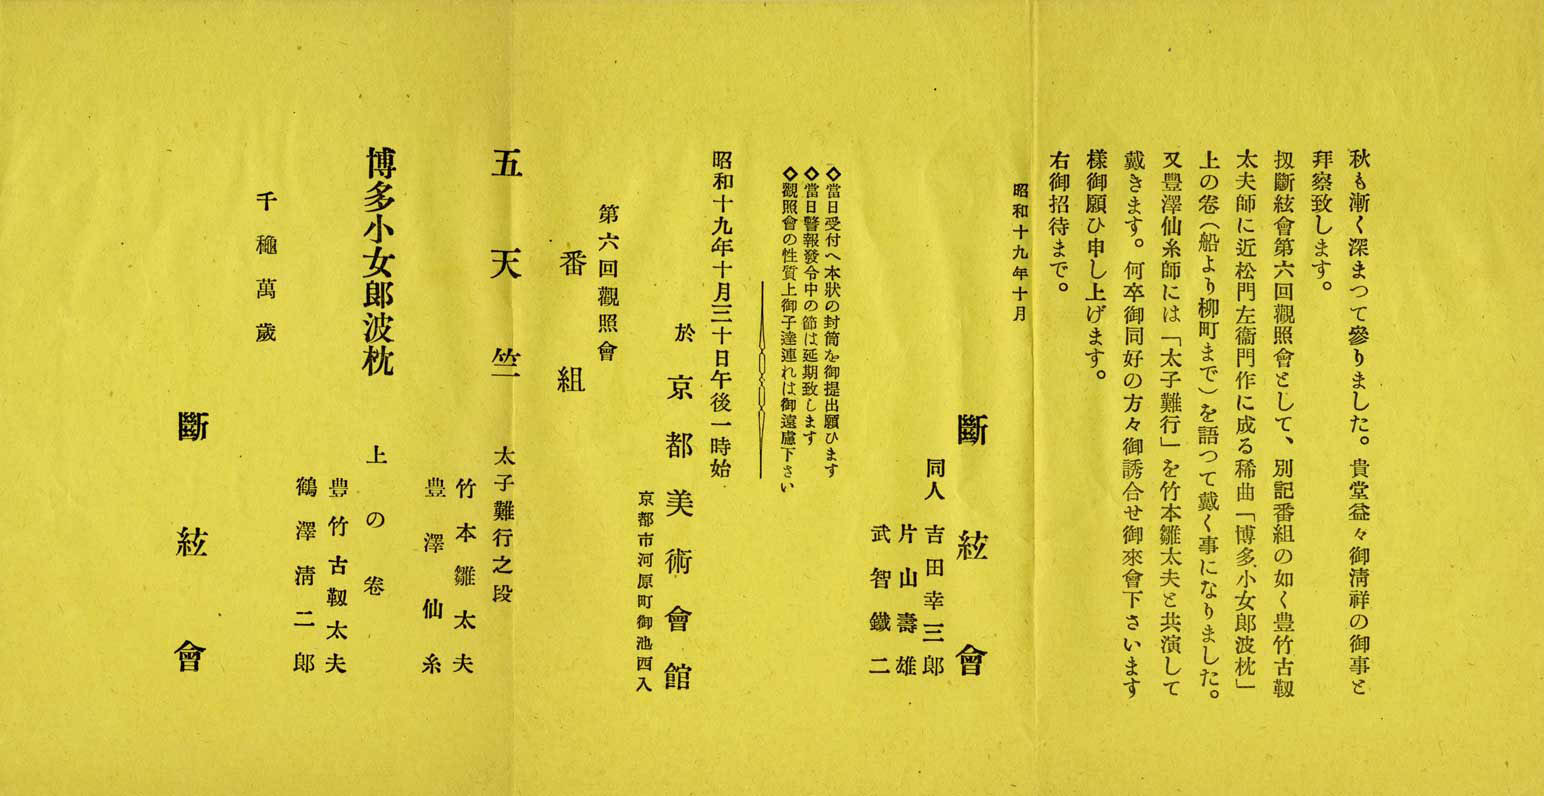 秋も漸く深まつて參りました。貴堂益々御淸祥の御事と
拜察致します。
扨斷絃會第六回觀照會として、別記番組の如く豊竹古靱
太夫師に近松門左衞門作に成る稀曲「博多小女郎波枕」
上の卷（船より柳町まで）を語つて戴く事になりました。
又豊澤仙糸師には「太子難行」を竹本雛太夫と共演して
戴きます。何卒御同好の方々御誘合せ御來會下さいます
樣御願ひ申し上げます。
右御招待まで。
昭和十九年十月
斷絃會
同人 吉田幸三郎
片山壽雄
武智鐵二
◇當日受付へ本狀の封筒を御提出願ひます
◇當日警報發令中の節は延期致します
◇觀照會の性質上御子達連れは御遠慮下さい
昭和十九年十月三十日午後一時始
於京都美術會館
京都市河原町御池西入
第六回觀照會
番組
五天竺 太子難行之段
竹本雛太夫
豊澤仙糸
博多小女郎波枕 上の卷
豊竹古靱太夫
鶴澤淸二郎
千龝萬歲
斷絃會